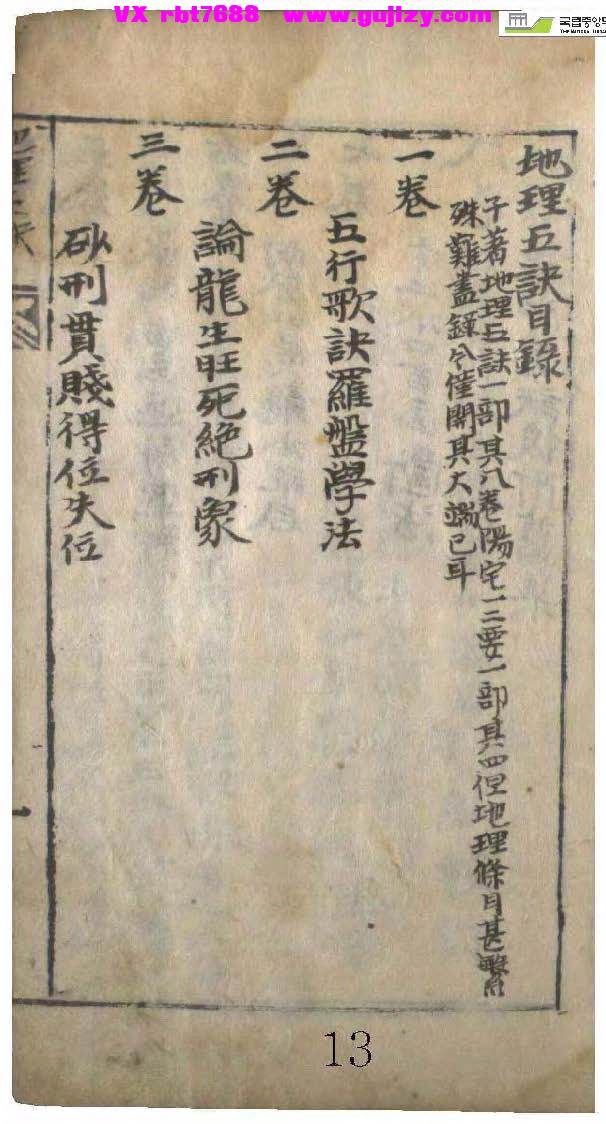 VX rbt7688 www.gujizy.com
地理五訣目錄
子著地理五訣一部其八卷陽宅一三要一部其四但地理條目甚繁
殊難盡錄今僅開其大端已耳
一卷
五行歌訣羅盤學法
二卷
論龍生旺死絕刑象
三卷
砂刑貫賤得位失位
一
13